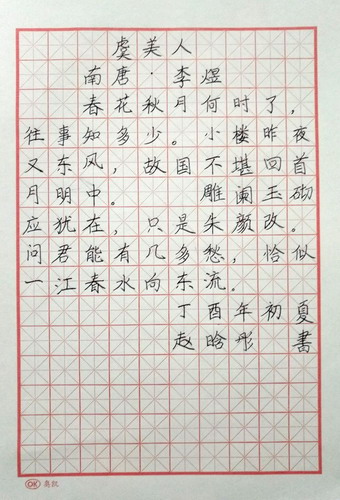 虞美人
南唐·李煜
春花秋月何时了，
往事知多少。小楼昨夜
又东风，故国不堪回首
月明中。 雕阑玉砌
应犹在，只是朱颜改。
问君能有几多愁，恰似
一江春水向东流.
丁酉年初夏
赵晗彤 書
OK 奥凯